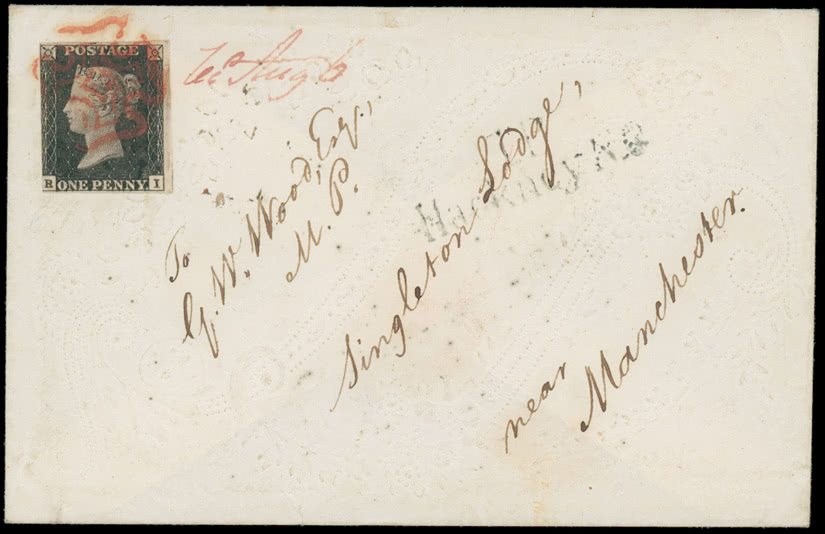 POSTAGE
R ONE PENNY I
Aug 6
To
G. W. Wood, Esq.,
M. P.
Singleton Lodge,
near
Manchester.